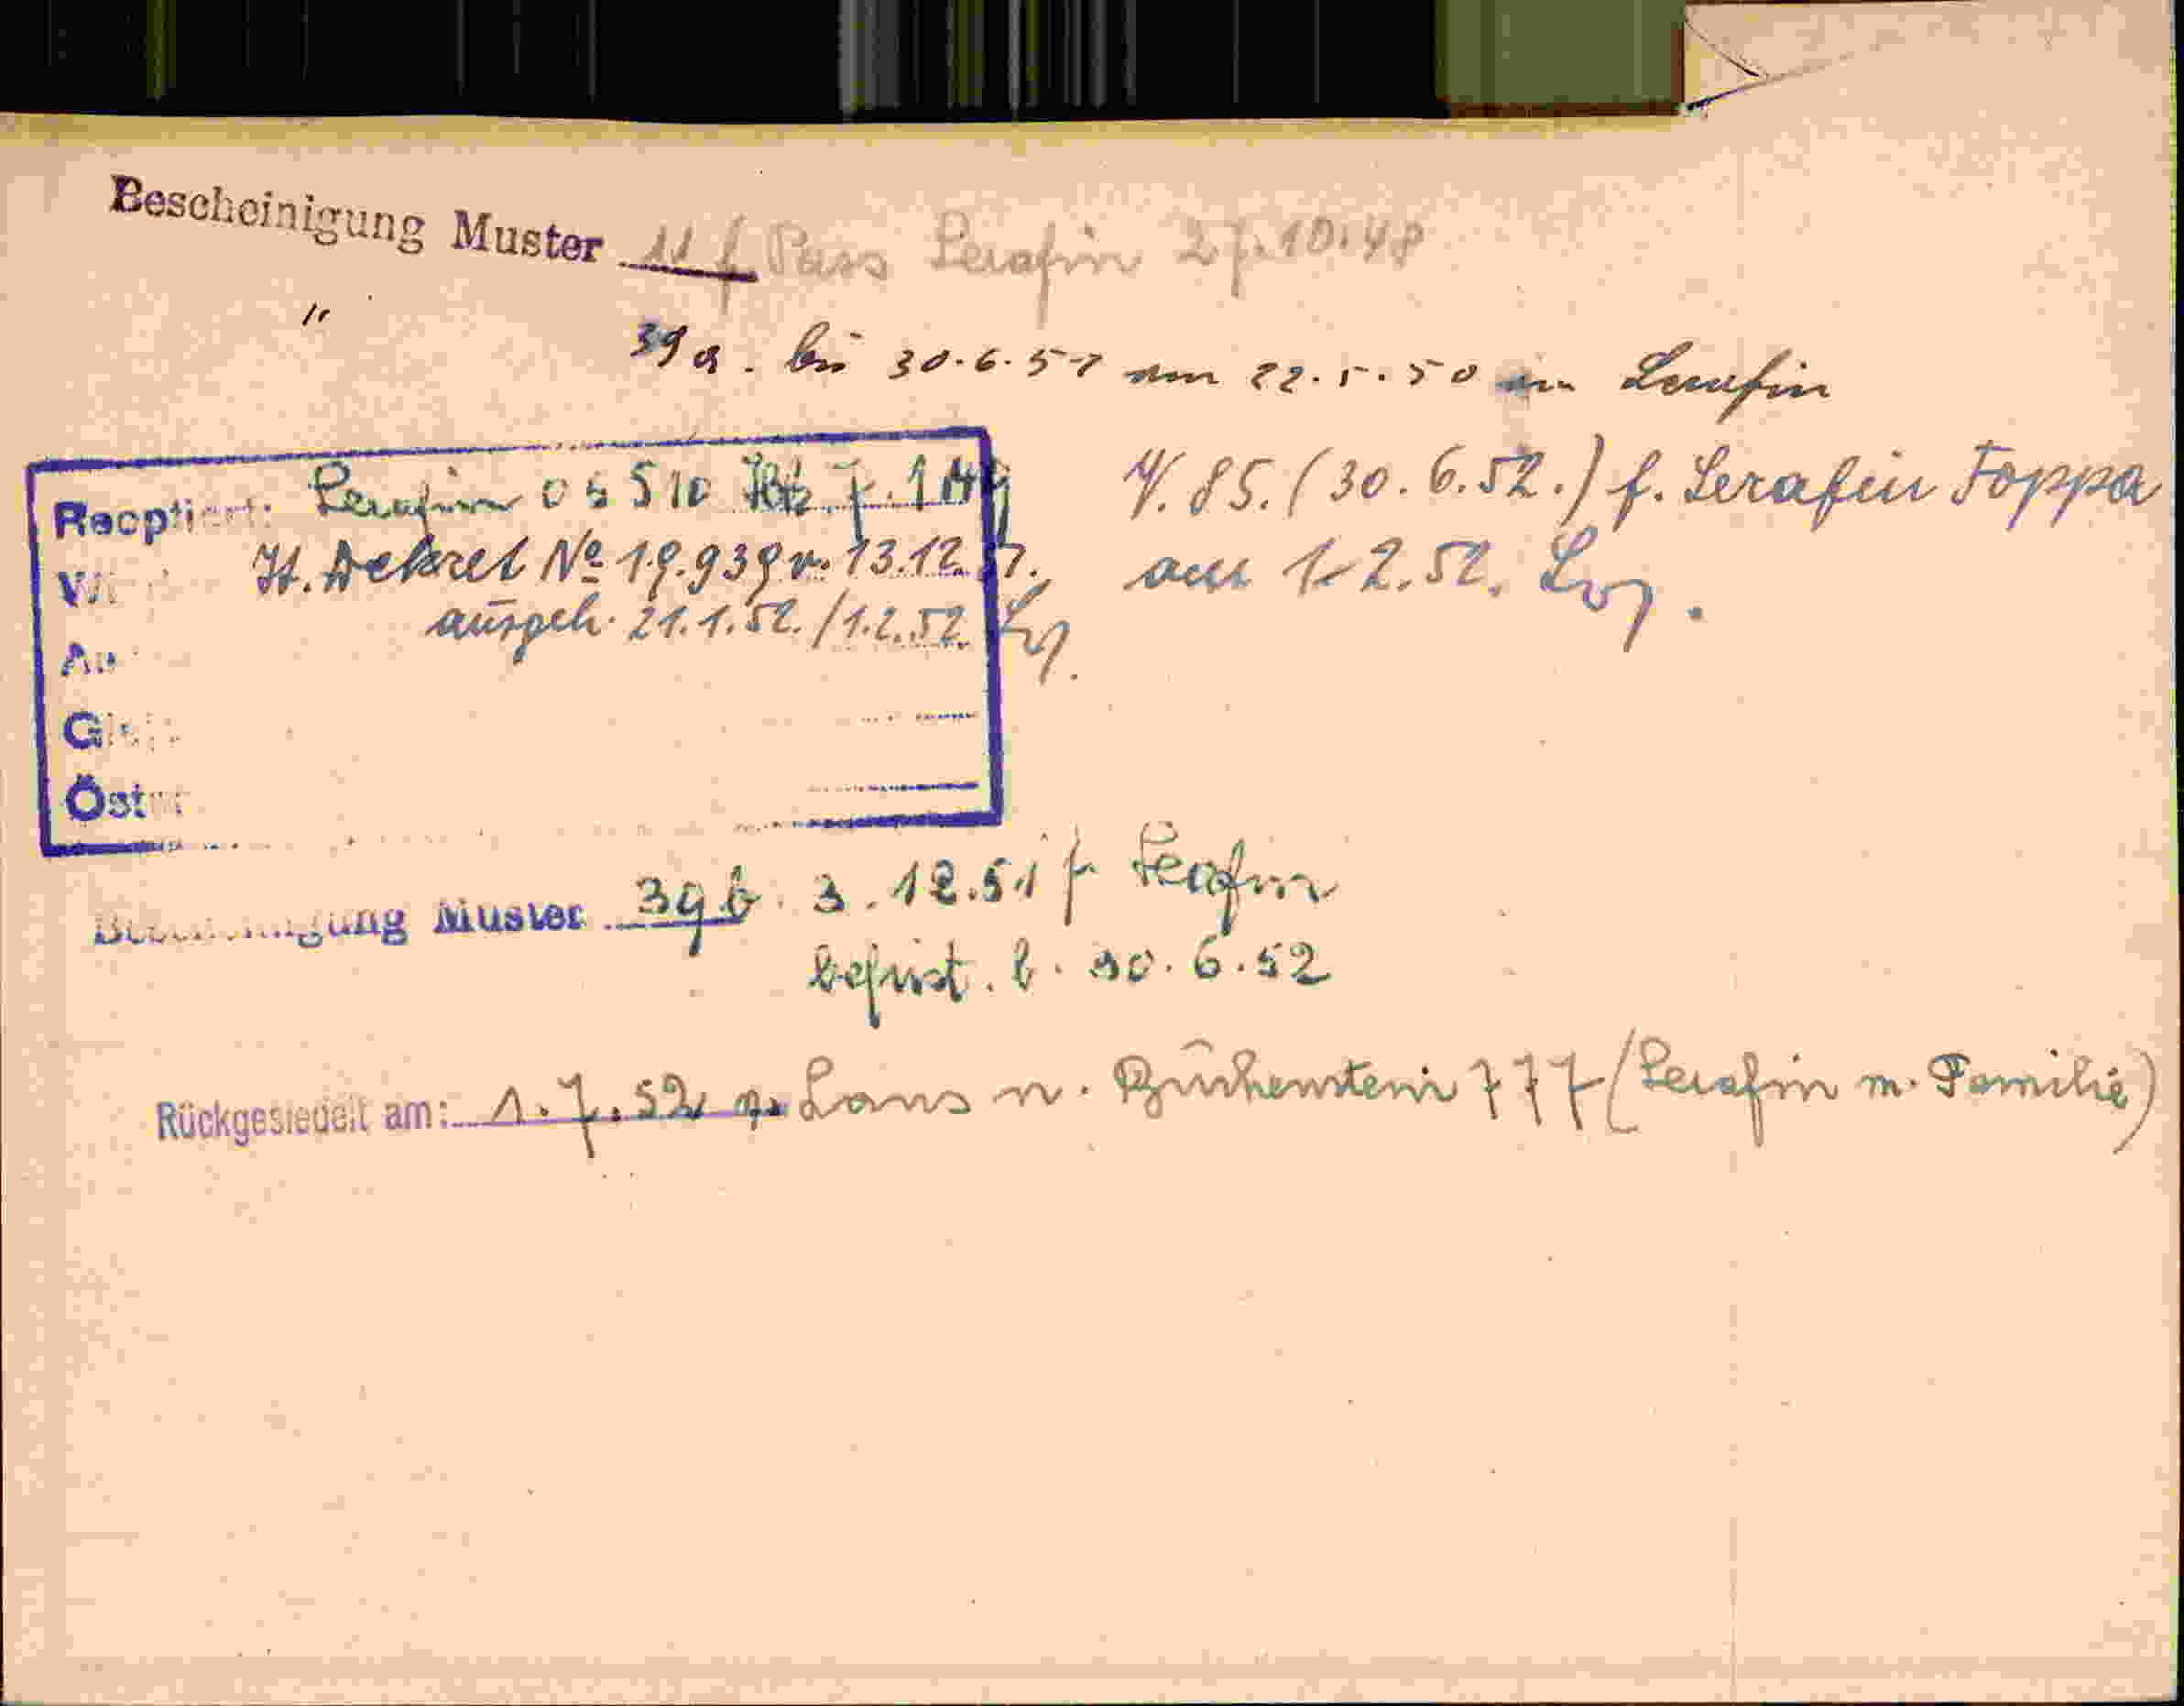 Bescheinigung Muster 11 f Pass Serafin 27.10.48
" 39a. bis 30.6.51 am 22.5.50 an Serafin
Reoptiert: Serafin 06510
It. Dekret № 19.939 v. 13.12.51.
ausgeh. 21.1.52. / 1.2.52
M. 85. (30.6.52.) f. Serafin Foppa
am 1.2.52.
Öst
Bescheinigung Muster 39b. 3.12.51 f Serafin
befrist. b. 30.6.52
Rückgesiedelt am: 1.7.52 v. Lans n. Buchenstein 777 (Serafin m. Familie)